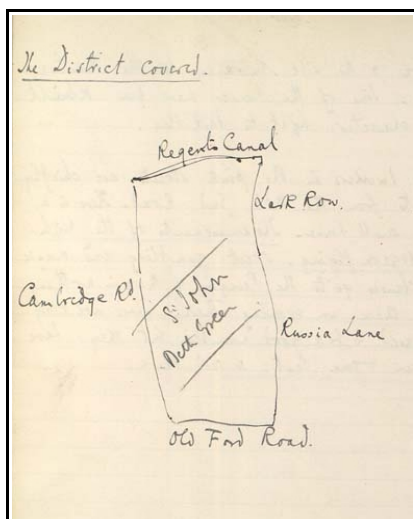 The District covered.
Regents Canal
Lark Row.
Cambridge Rd.
St John
Beth Green
Russia Lane
Old Ford Road.